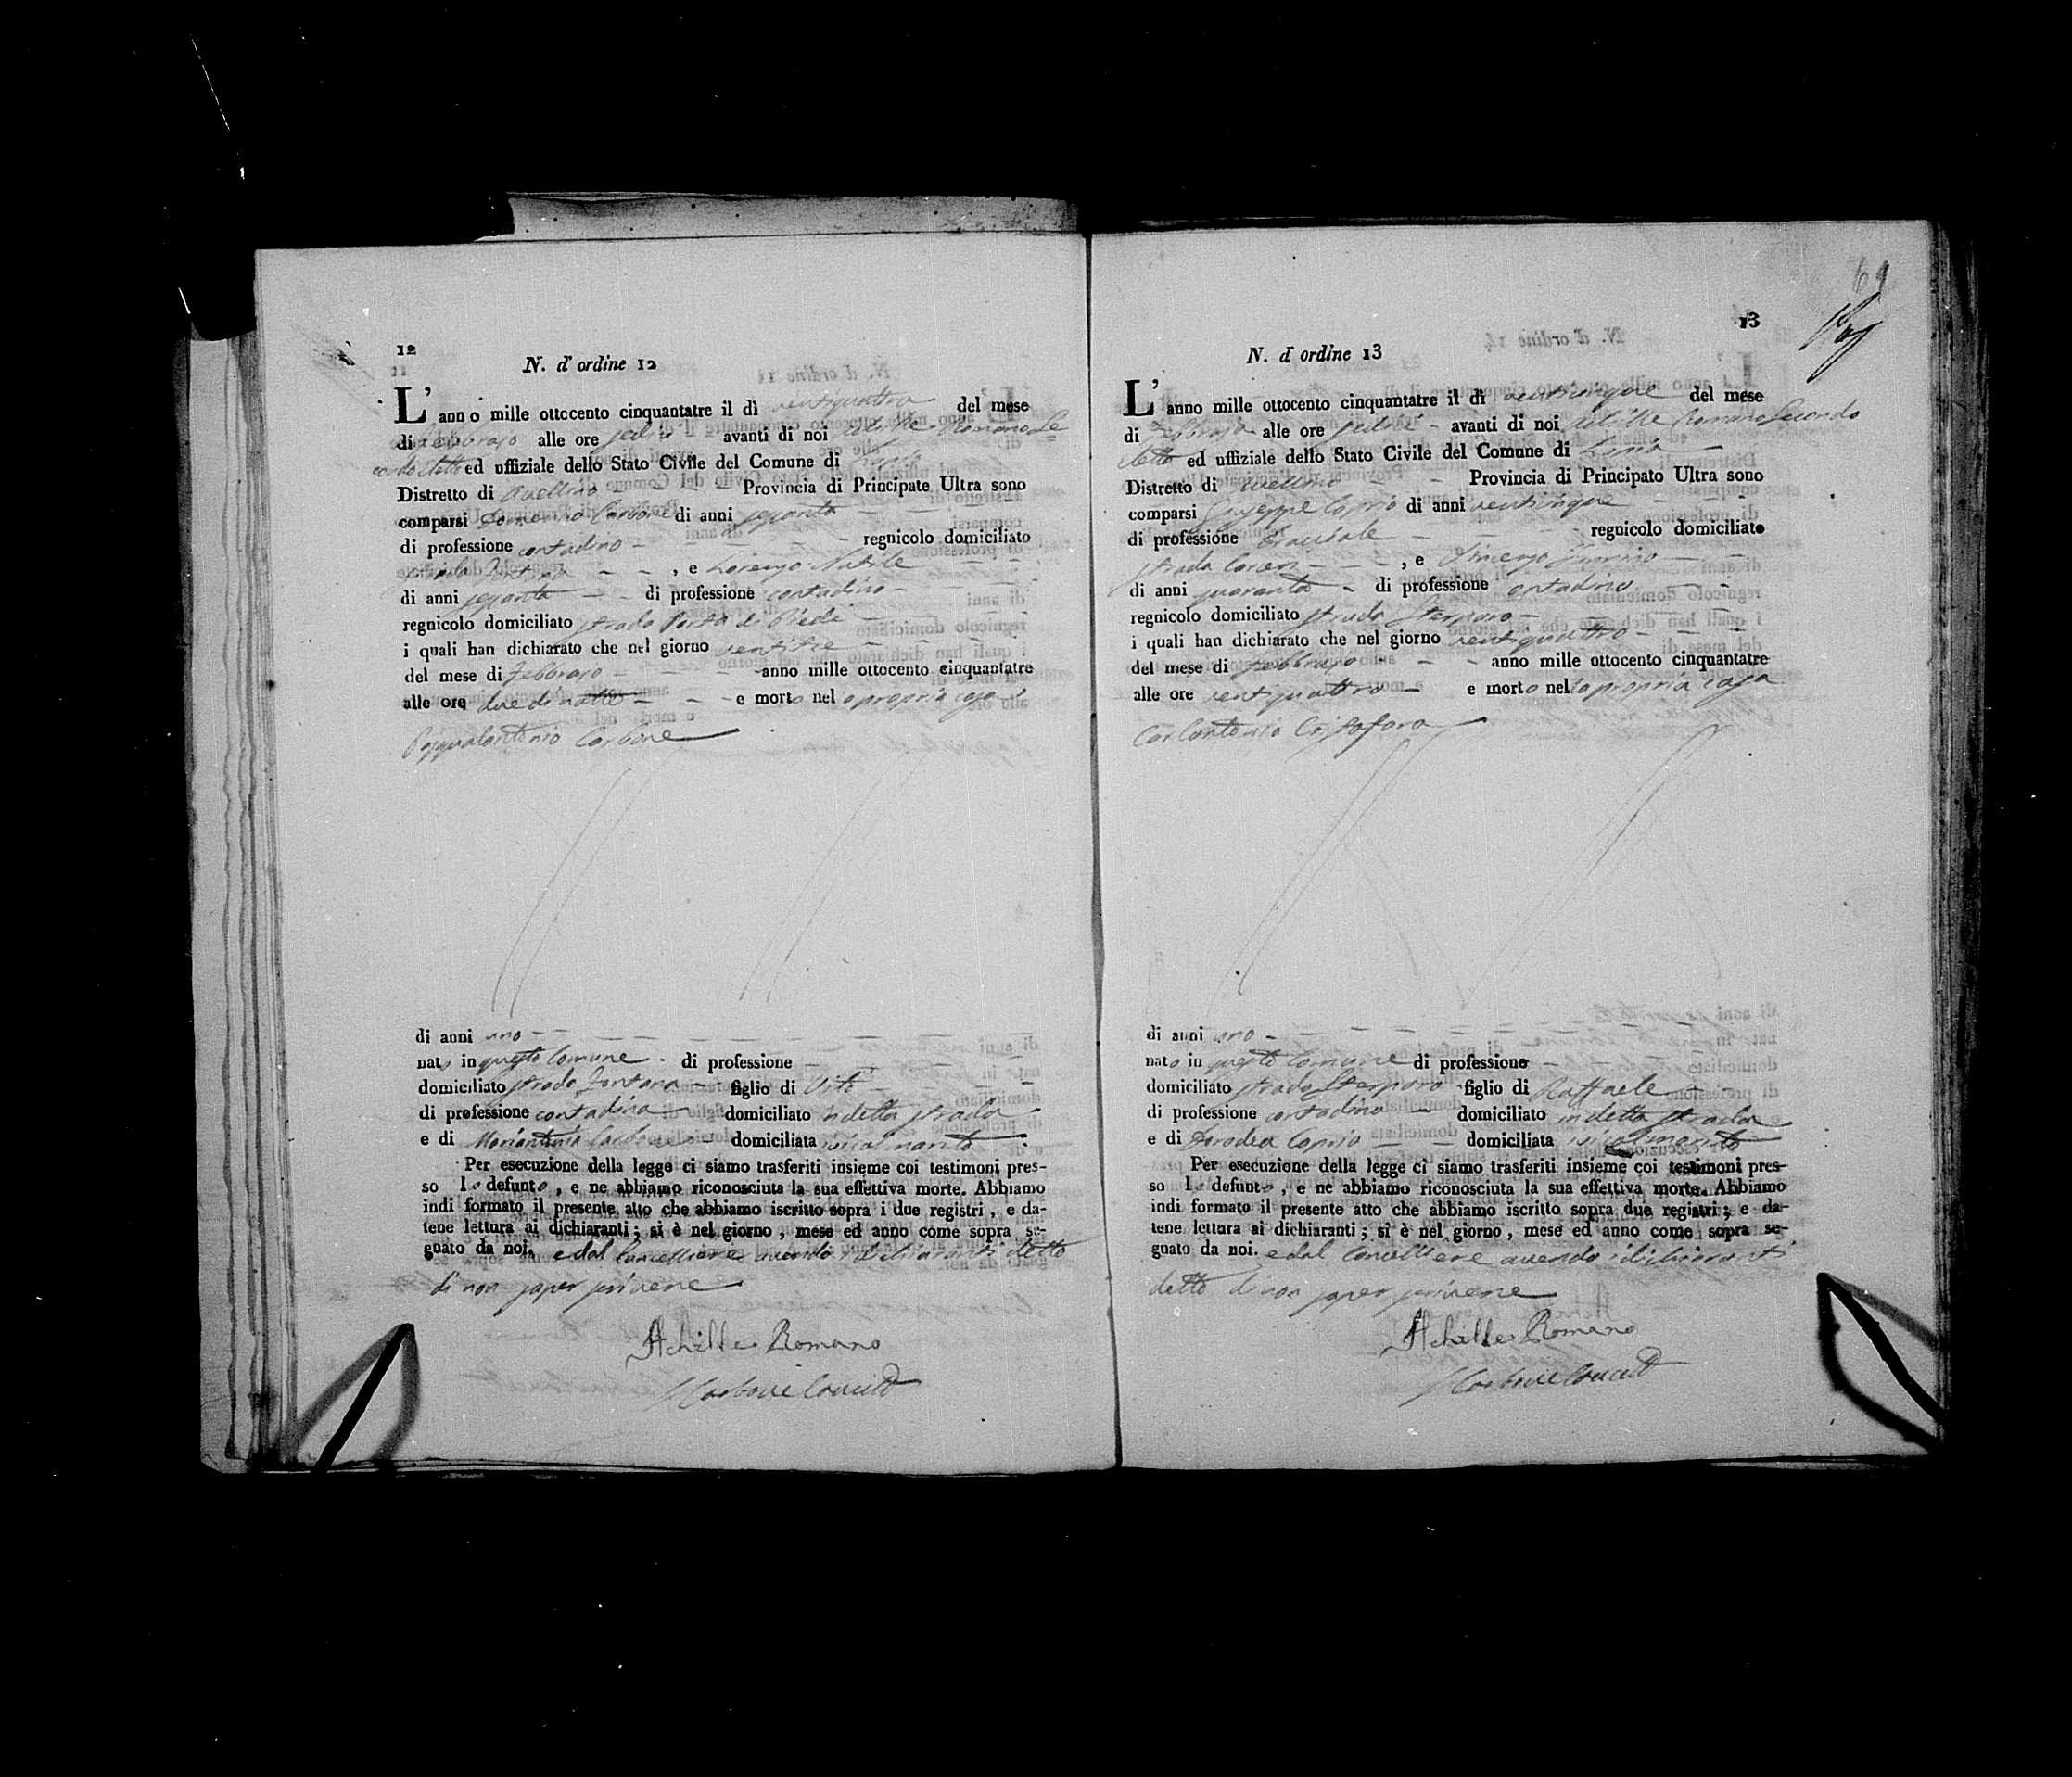 12
N. d'ordine 12
L'anno mille ottocento cinquantatre il dì ventiquattro del mese
di Febbrajo alle ore sedici avanti di noi Achille Romano Se
condo Eletto ed uffiziale dello Stato Civile del Comune di
Distretto di Avellino Provincia di Principato Ultra sono
comparsi Carbone di anni sessanta
di professione contadino regnicolo domiciliato
strada Fontana , e Lorenzo Nobile
di anni sessanta di professione contadino
regnicolo domiciliato strada Porta di Piedi
i quali han dichiarato che nel giorno ventitre
del mese di Febbrajo anno mille ottocento cinquantatre
alle ore due di notte e morto nella propria casa
Pasqualantonio Carbone
di anni uno
nato in questo Comune di professione
domiciliato strada Fontana figlio di Vito
di professione contadino domiciliato in detta strada
e di Mariantonia domiciliata col marito
Per esecuzione della legge ci siamo trasferiti insieme coi testimoni pres-
so lo defunto, e ne abbiamo riconosciuta la sua effettiva morte. Abbiamo
indi formato il presente atto che abbiamo iscritto sopra i due registri, e da-
tene lettura ai dichiaranti; si è nel giorno, mese ed anno come sopra se-
gnato da noi. e dal Cancelliere avendo i dichiaranti detto
di non saper scrivere
Achille Romano
Carbone Cancell
69
13
N. d'ordine 13
L'anno mille ottocento cinquantatre il dì venticinque del mese
di Febbrajo alle ore sedici avanti di noi Achille Romano Secondo
Eletto ed uffiziale dello Stato Civile del Comune di
Distretto di Avellino Provincia di Principato Ultra sono
comparsi Giuseppe Caprio di anni venticinque
di professione bracciale regnicolo domiciliato
strada , e Vincenzo
di anni quaranta di professione contadino
regnicolo domiciliato strada Sterparo
i quali han dichiarato che nel giorno ventiquattro
del mese di Febbrajo anno mille ottocento cinquantatre
alle ore ventiquattro e morto nella propria casa
Carlantonio Cristofaro
di anni uno
nato in questo Comune di professione
domiciliato strada Sterparo figlio di Raffaele
di professione contadino domiciliato in detta strada
e di Caprio domiciliata col marito
Per esecuzione della legge ci siamo trasferiti insieme coi testimoni pres-
so lo defunto, e ne abbiamo riconosciuta la sua effettiva morte. Abbiamo
indi formato il presente atto che abbiamo iscritto sopra due registri; e da-
tene lettura ai dichiaranti; si è nel giorno, mese ed anno come sopra se-
gnato da noi. e dal Cancelliere avendo i dichiaranti
detto di non saper scrivere
Achille Romano
Carbone Cancell